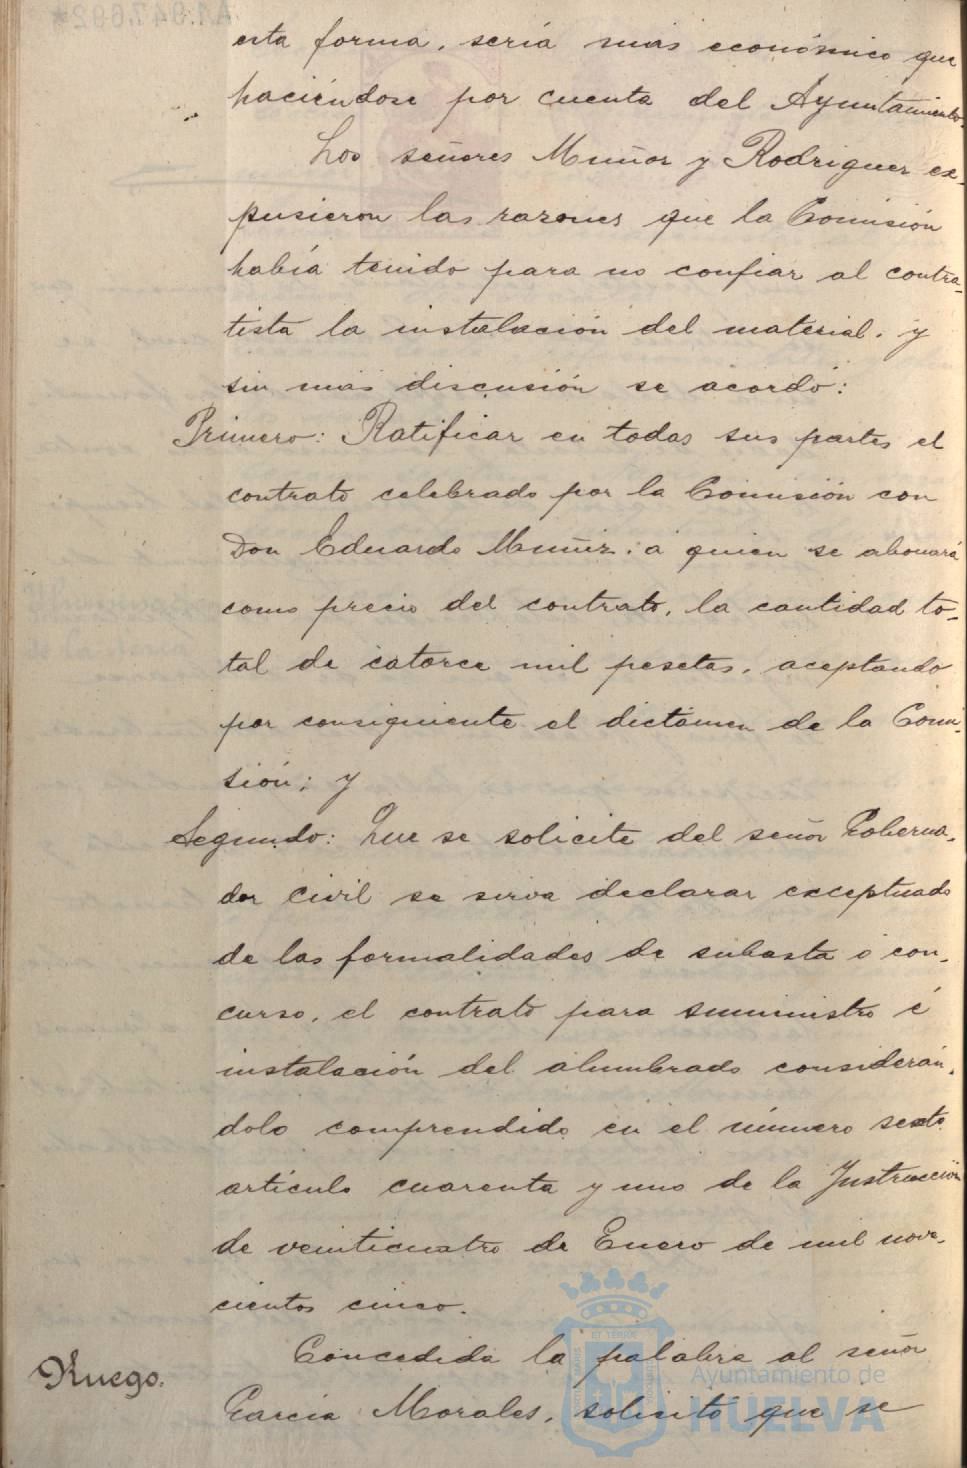 esta forma, sería más económico que
haciéndose por cuenta del Ayuntamiento.
Los señores Muñoz y Rodriguez ex-
pusieron las razones que la Comisión
había tenido para no confiar al contra-
tista la instalación del material, y
sin más discusión se acordó:
Primero: Ratificar en todas sus partes el
contrato celebrado por la Comisión con
Don Eduardo Muñiz, a quien se abonará
como precio del contrato, la cantidad to-
tal de catorce mil pesetas, aceptando
por consiguiente el dictámen de la Comi-
sión; y
Segundo: Que se solicite del señor Goberna-
dor civil se sirva declarar exceptuado
de las formalidades de subasta ó con-
curso, el contrato para suministro é
instalación del alumbrado considerán-
dolo comprendido en el número sexto
artículo cuarenta y uno de la Instrucción
de veinticuatro de Enero de mil nove-
cientos cinco.
Ruego.
Concedida la palabra al señor
García Morales, solicitó que se
Ayuntamiento de
HUELVA